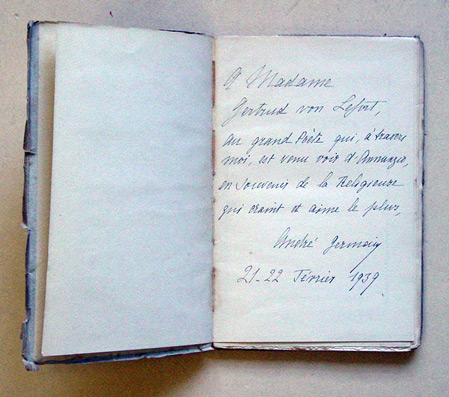 A Madame
Gertrud von Lefort,
au grand Poète qui, à travers
moi, est venu voir d'Annunzio,
en souvenir de la Religieuse
qui craint et aime le plus,
André Germain
21-22 Février 1939